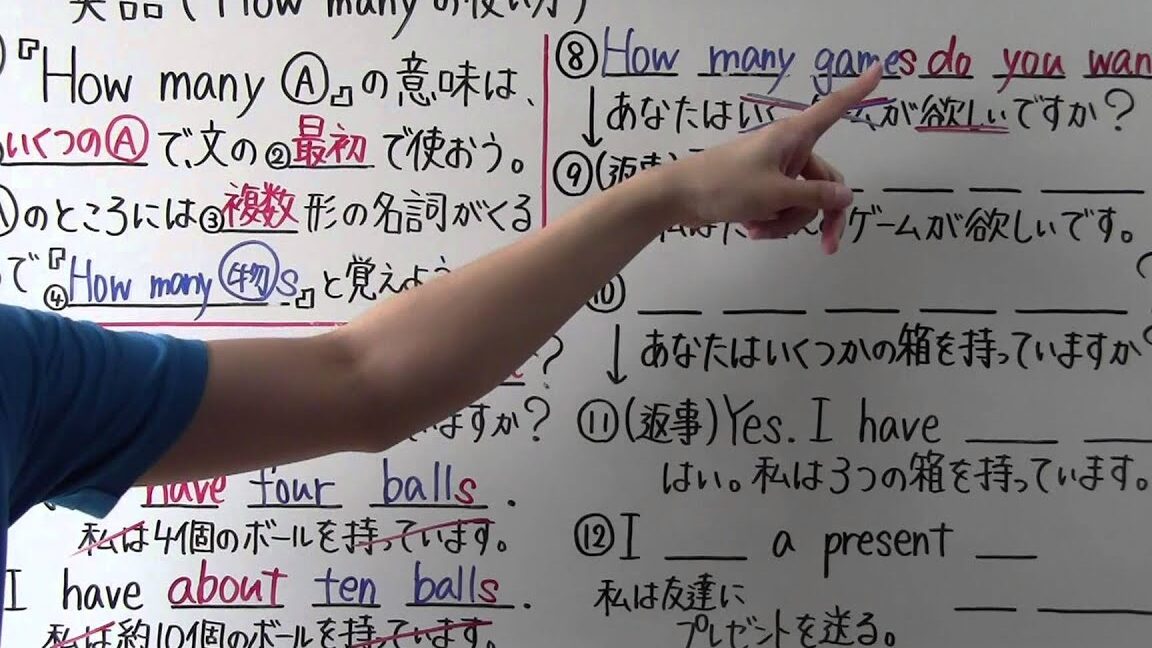 英語(How manyの使い方)
『How many Ⓐ』の意味は、
いくつのⒶで、文の②最初で使おう。
のところには③複数形の名詞がくる
で『④How many 物s』と覚えよう
?
ますか?
have four balls.
私は4個のボールを持っています。
I have about ten balls.
私は約10個のボールを持っています。
⑧How many games do you wan
↓あなたはいくつ ムが欲しいですか?
⑨(返事)
私は ゲームが欲しいです。
⑩
↓あなたはいくつかの箱を持っていますか?
⑪(返事)Yes. I have
はい。私は3つの箱を持っています。
⑫I a present
私は友達に
プレゼントを送る。